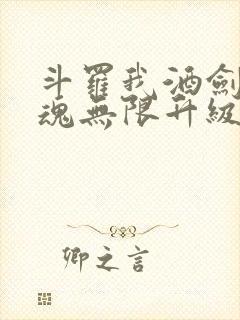 斗羅我酒劍
魂無限升級
卿之言